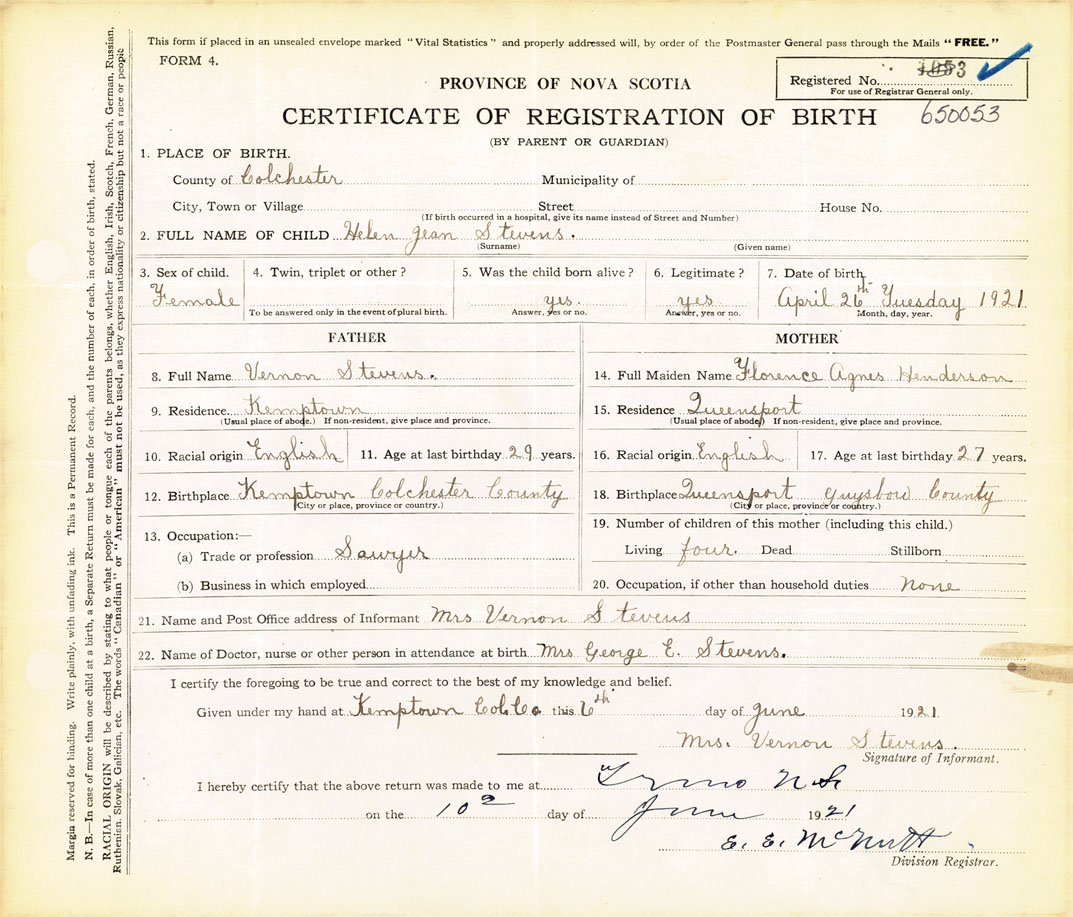 This form if placed in an unsealed envelope marked "Vital Statistics" and properly addressed will, by order of the Postmaster General pass through the Mails "FREE."
FORM 4.
PROVINCE OF NOVA SCOTIA
Registered No. 1053
For use of Registrar General only.
CERTIFICATE OF REGISTRATION OF BIRTH
650053
(BY PARENT OR GUARDIAN)
1. PLACE OF BIRTH.
County of Colchester Municipality of
City, Town or Village Street House No.
(If birth occurred in a hospital, give its name instead of Street and Number)
2. FULL NAME OF CHILD Helen Jean Stevens.
(Surname) (Given name)
3. Sex of child. 4. Twin, triplet or other? 5. Was the child born alive? 6. Legitimate? 7. Date of birth.
Female yes. yes April 26th Tuesday 1921.
To be answered only in the event of plural birth. Answer, yes or no. Answer, yes or no. Month, day, year.
FATHER MOTHER
8. Full Name Vernon Stevens. 14. Full Maiden Name Florence Agnes Henderson
9. Residence. Kemptown 15. Residence Queensport
(Usual place of abode.) If non-resident, give place and province. (Usual place of abode) If non-resident, give place and province.
10. Racial origin English 11. Age at last birthday 29 years. 16. Racial origin English 17. Age at last birthday 27 years.
12. Birthplace Kemptown Colchester County 18. Birthplace Queensport Guysboro County
(City or place, province or country.) (City or place, province or country.)
13. Occupation:— 19. Number of children of this mother (including this child.)
(a) Trade or profession Sawyer Living four. Dead Stillborn
(b) Business in which employed 20. Occupation, if other than household duties None
21. Name and Post Office address of Informant Mrs Vernon Stevens
22. Name of Doctor, nurse or other person in attendance at birth Mrs George E. Stevens.
I certify the foregoing to be true and correct to the best of my knowledge and belief.
Given under my hand at Kemptown Col. Co. this 6th day of June 1921.
Mrs. Vernon Stevens.
Signature of Informant.
I hereby certify that the above return was made to me at Truro N.S.
on the 10 day of June 1921
E. E. McNutt
Division Registrar.
Margin reserved for binding. Write plainly, with unfading ink. This is a Permanent Record.
N. B.—In case of more than one child at a birth, a Separate Return must be made for each, and the number of each, in order of birth, stated.
RACIAL ORIGIN will be described by stating to what people or tongue each of the parents belongs, whether English, Irish, Scotch, French, German, Russian,
Ruthenian, Slovak, Galician, etc. The words "Canadian" or "American" must not be used, as they express nationality or citizenship but not a race or people